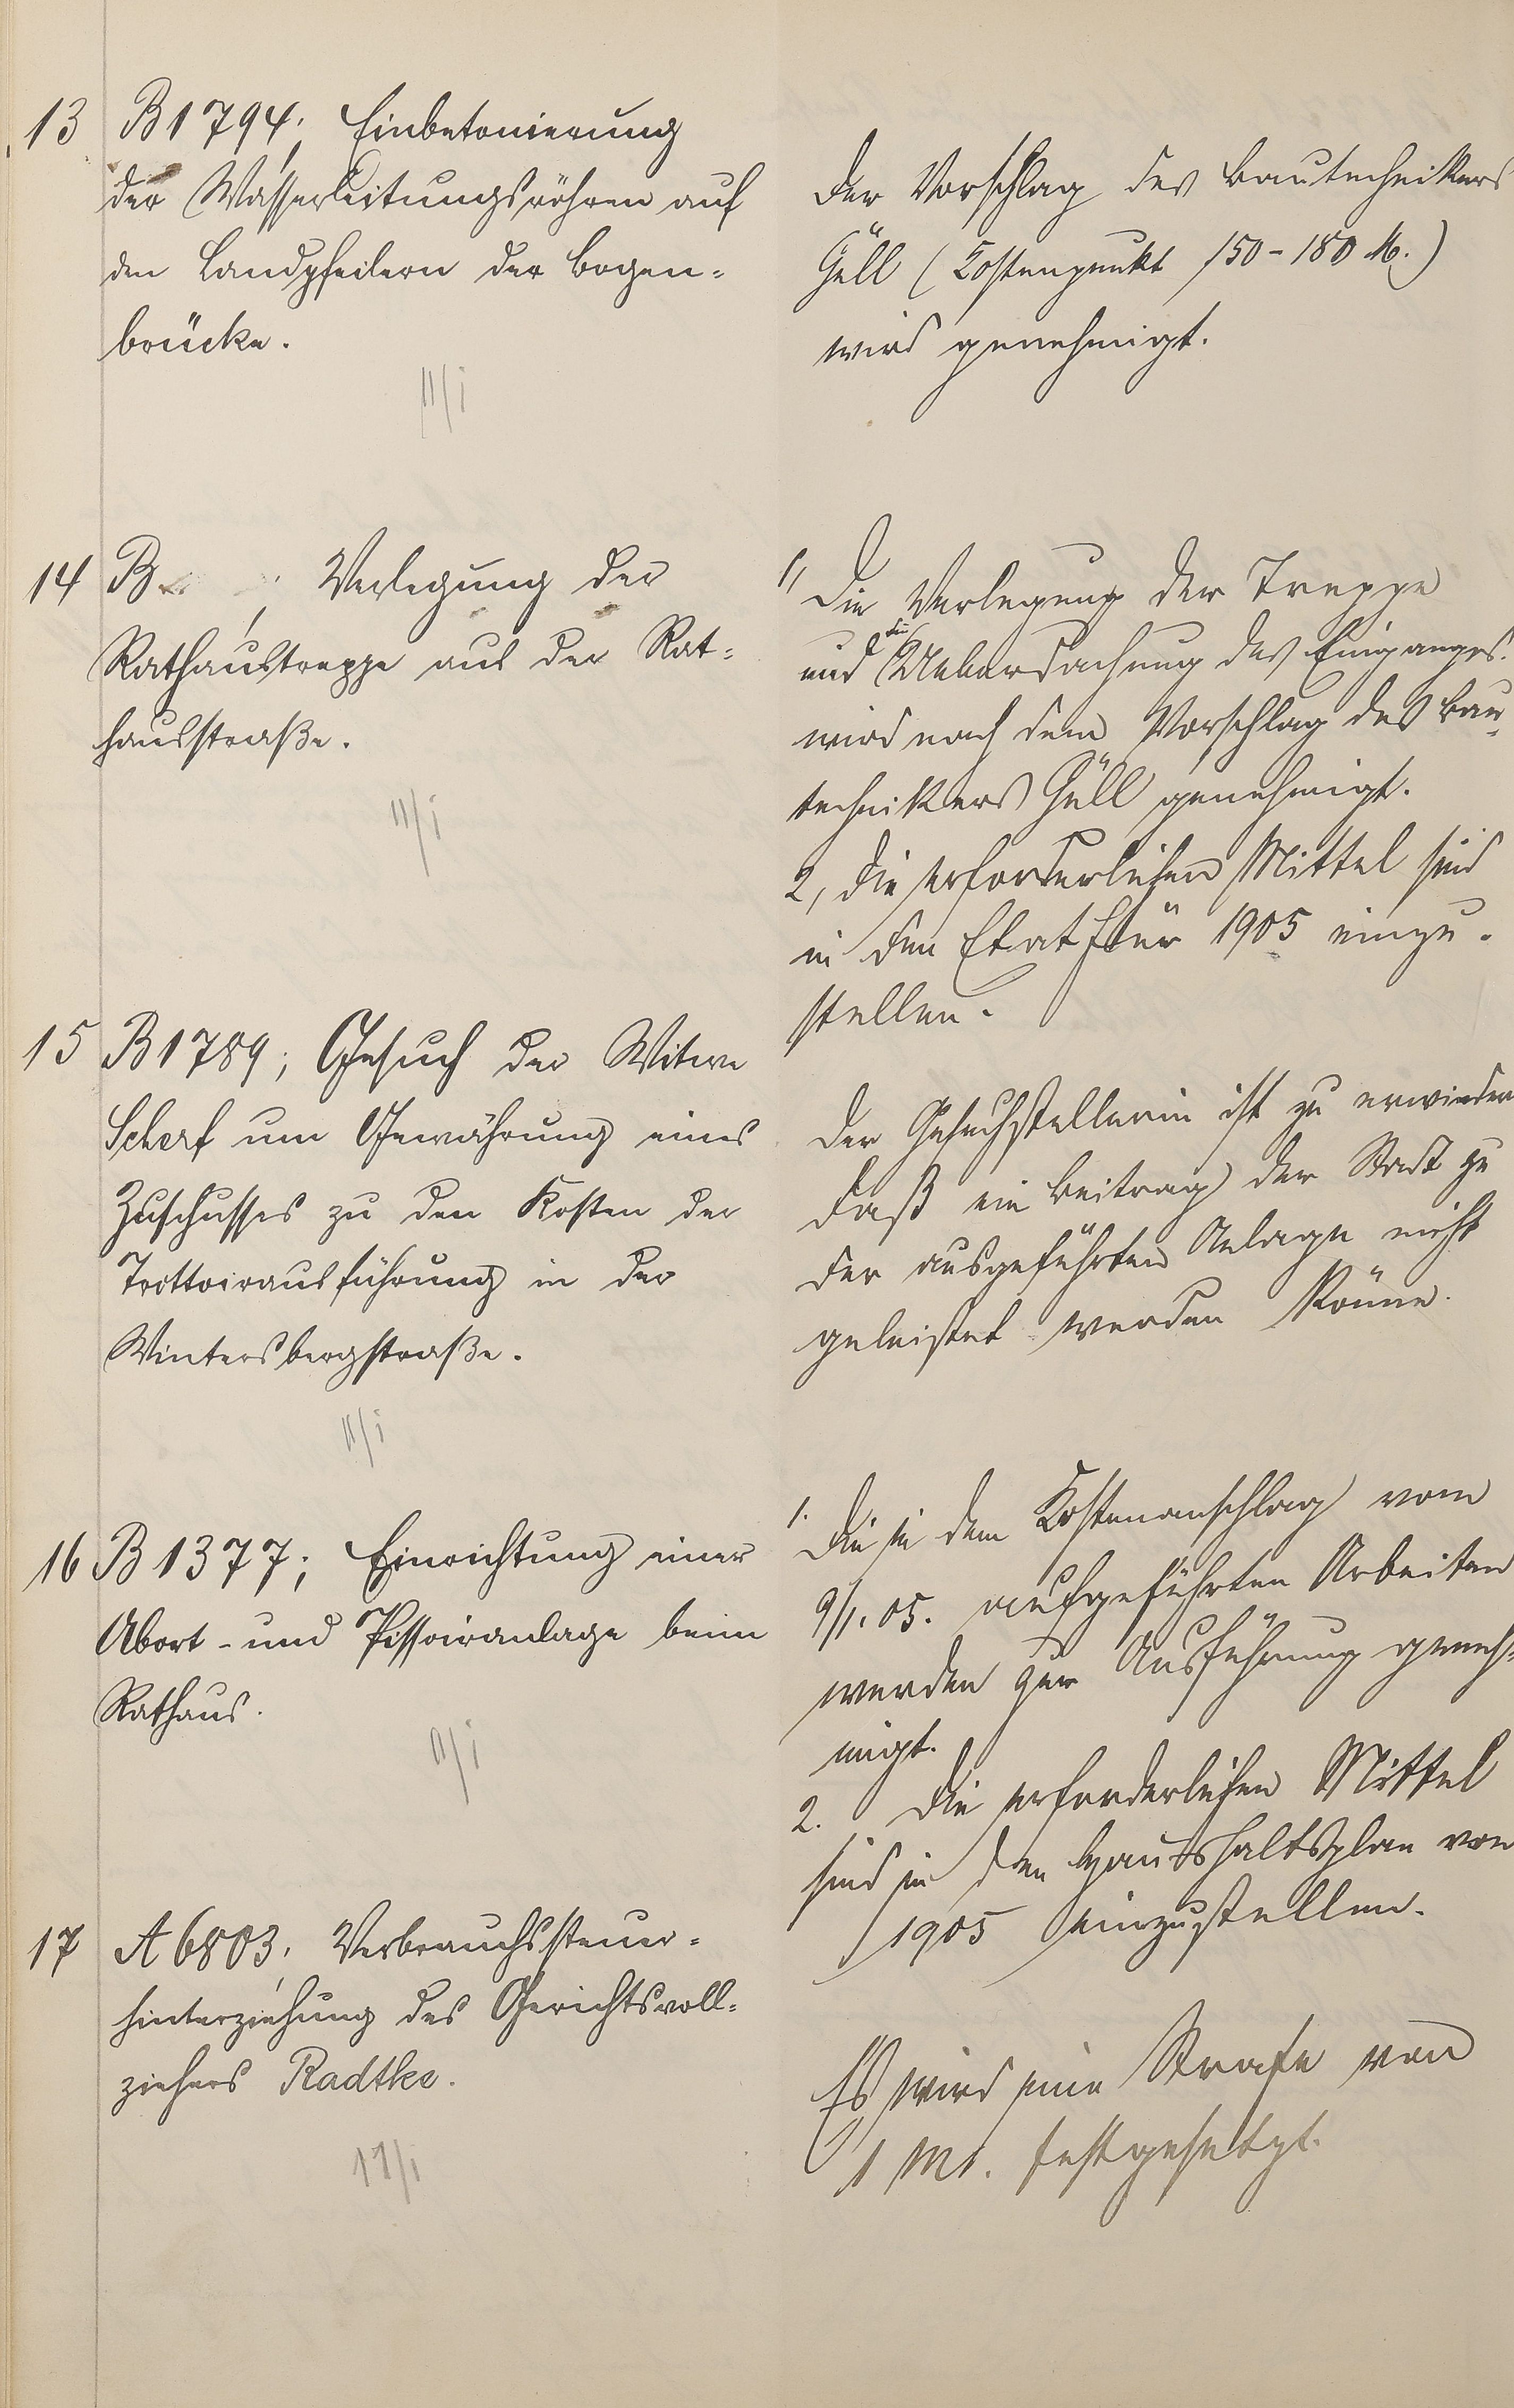 13 B 1794; Einbetonierung
der Wasserleitungsröhren auf
den Landpfeilern der Bogen-
brücke.
II/i
Der Vorschlag des Bautechnikers
Güll (Kostenpunkt 150-180 M.)
wird genehmigt.
14 B ; Verlegung der
Rathaustreppe aus der Rat-
hausstraße.
II/i
1, Die Verlegung der Treppe
und die Ueberdachung des Einganges
wird nach dem Vorschlag des Bau-
technikers Güll genehmigt.
2, die erforderlichen Mittel sind
in den Etat für 1905 einzu-
stellen.
15 B 1789; Gesuch der Witwe
Scherf um Gewährung eines
Zuschusses zu den Kosten der
Trottoirausführung in der
Wintersbergstraße.
II/i
Der Gesuchstellerin ist zu erwidern
daß ein Beitrag der Stadt zu
der ausgeführten Anlage nicht
geleistet werden könne.
16 B 1377; Einrichtung einer
Abort- und Pissoiranlage beim
Rathaus.
II/i
1. Die in dem Kostenanschlag vom
9/1. 05. aufgeführten Arbeiten
werden zur Ausführung geneh-
migt.
2. Die erforderlichen Mittel
sind in den Haushaltsplan von
1905 einzustellen.
17 A 6803, Verbrauchssteuer-
hinterziehung des Gerichtsvoll-
ziehers Radtke.
11/i
Es wird eine Strafe von
1 Mk. festgesetzt.